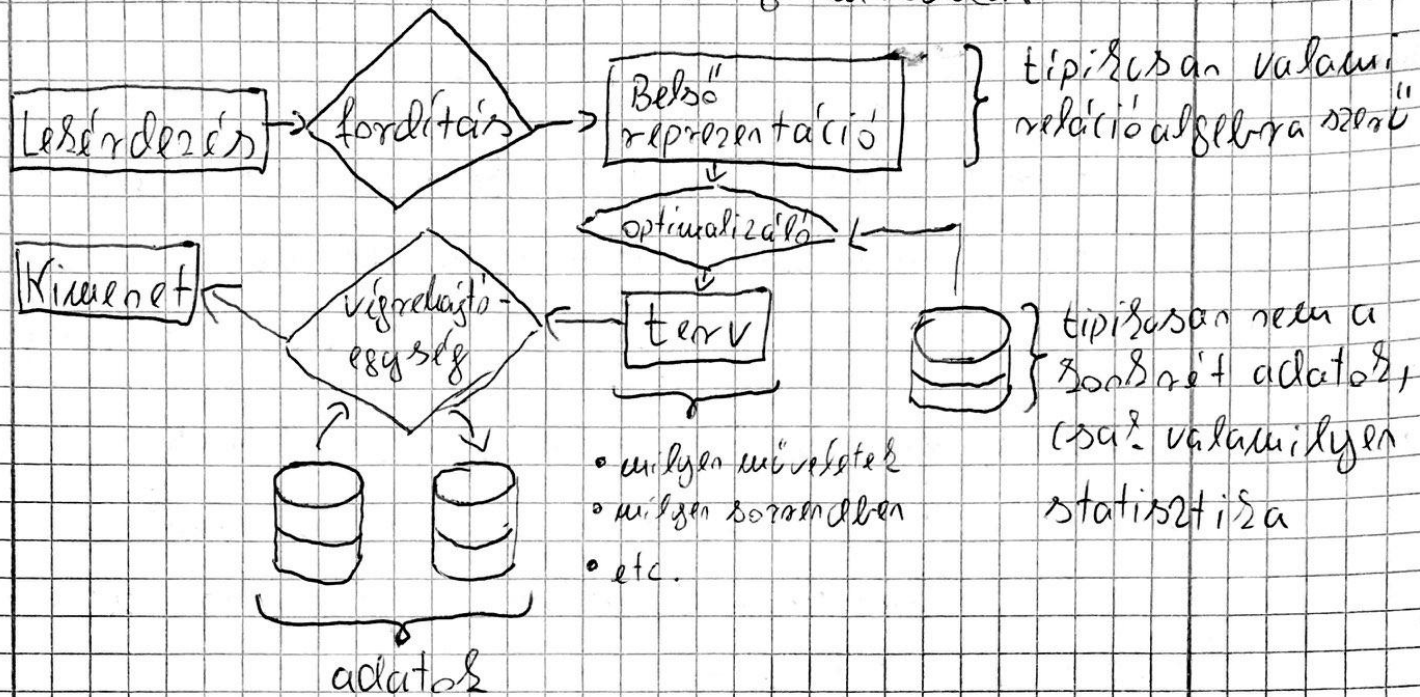 Lekérdezés
fordítás
Belső
reprezentáció
tipikusan valami
relációalgebra szerű
optimalizáló
Kimenet
végrehajtó-
egység
terv
tipikusan nem a
konkrét adatok,
csak valamilyen
statisztika
• milyen műveletek
• milyen sorrendben
• etc.
adatok